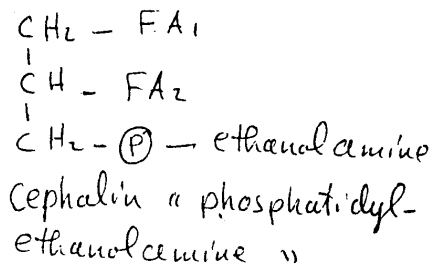 CH₂ - FA₁
CH - FA₂
CH₂ - Ⓟ - ethanolamine
Cephalin " phosphatidyl-
ethanolamine "